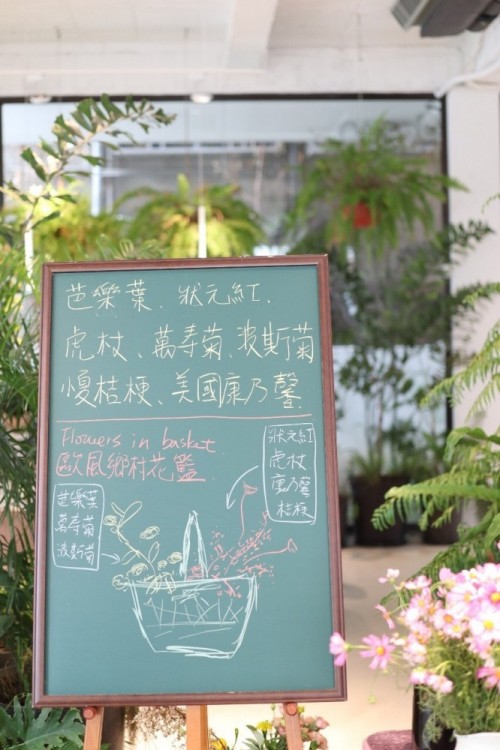 芭樂葉、狀元紅、
虎杖、萬壽菊、波斯菊
傻桔梗、美國康乃馨
Flowers in basket
歐風鄉村花籃
狀元紅
虎杖
康乃馨
桔梗
芭樂葉
萬壽菊
波斯菊